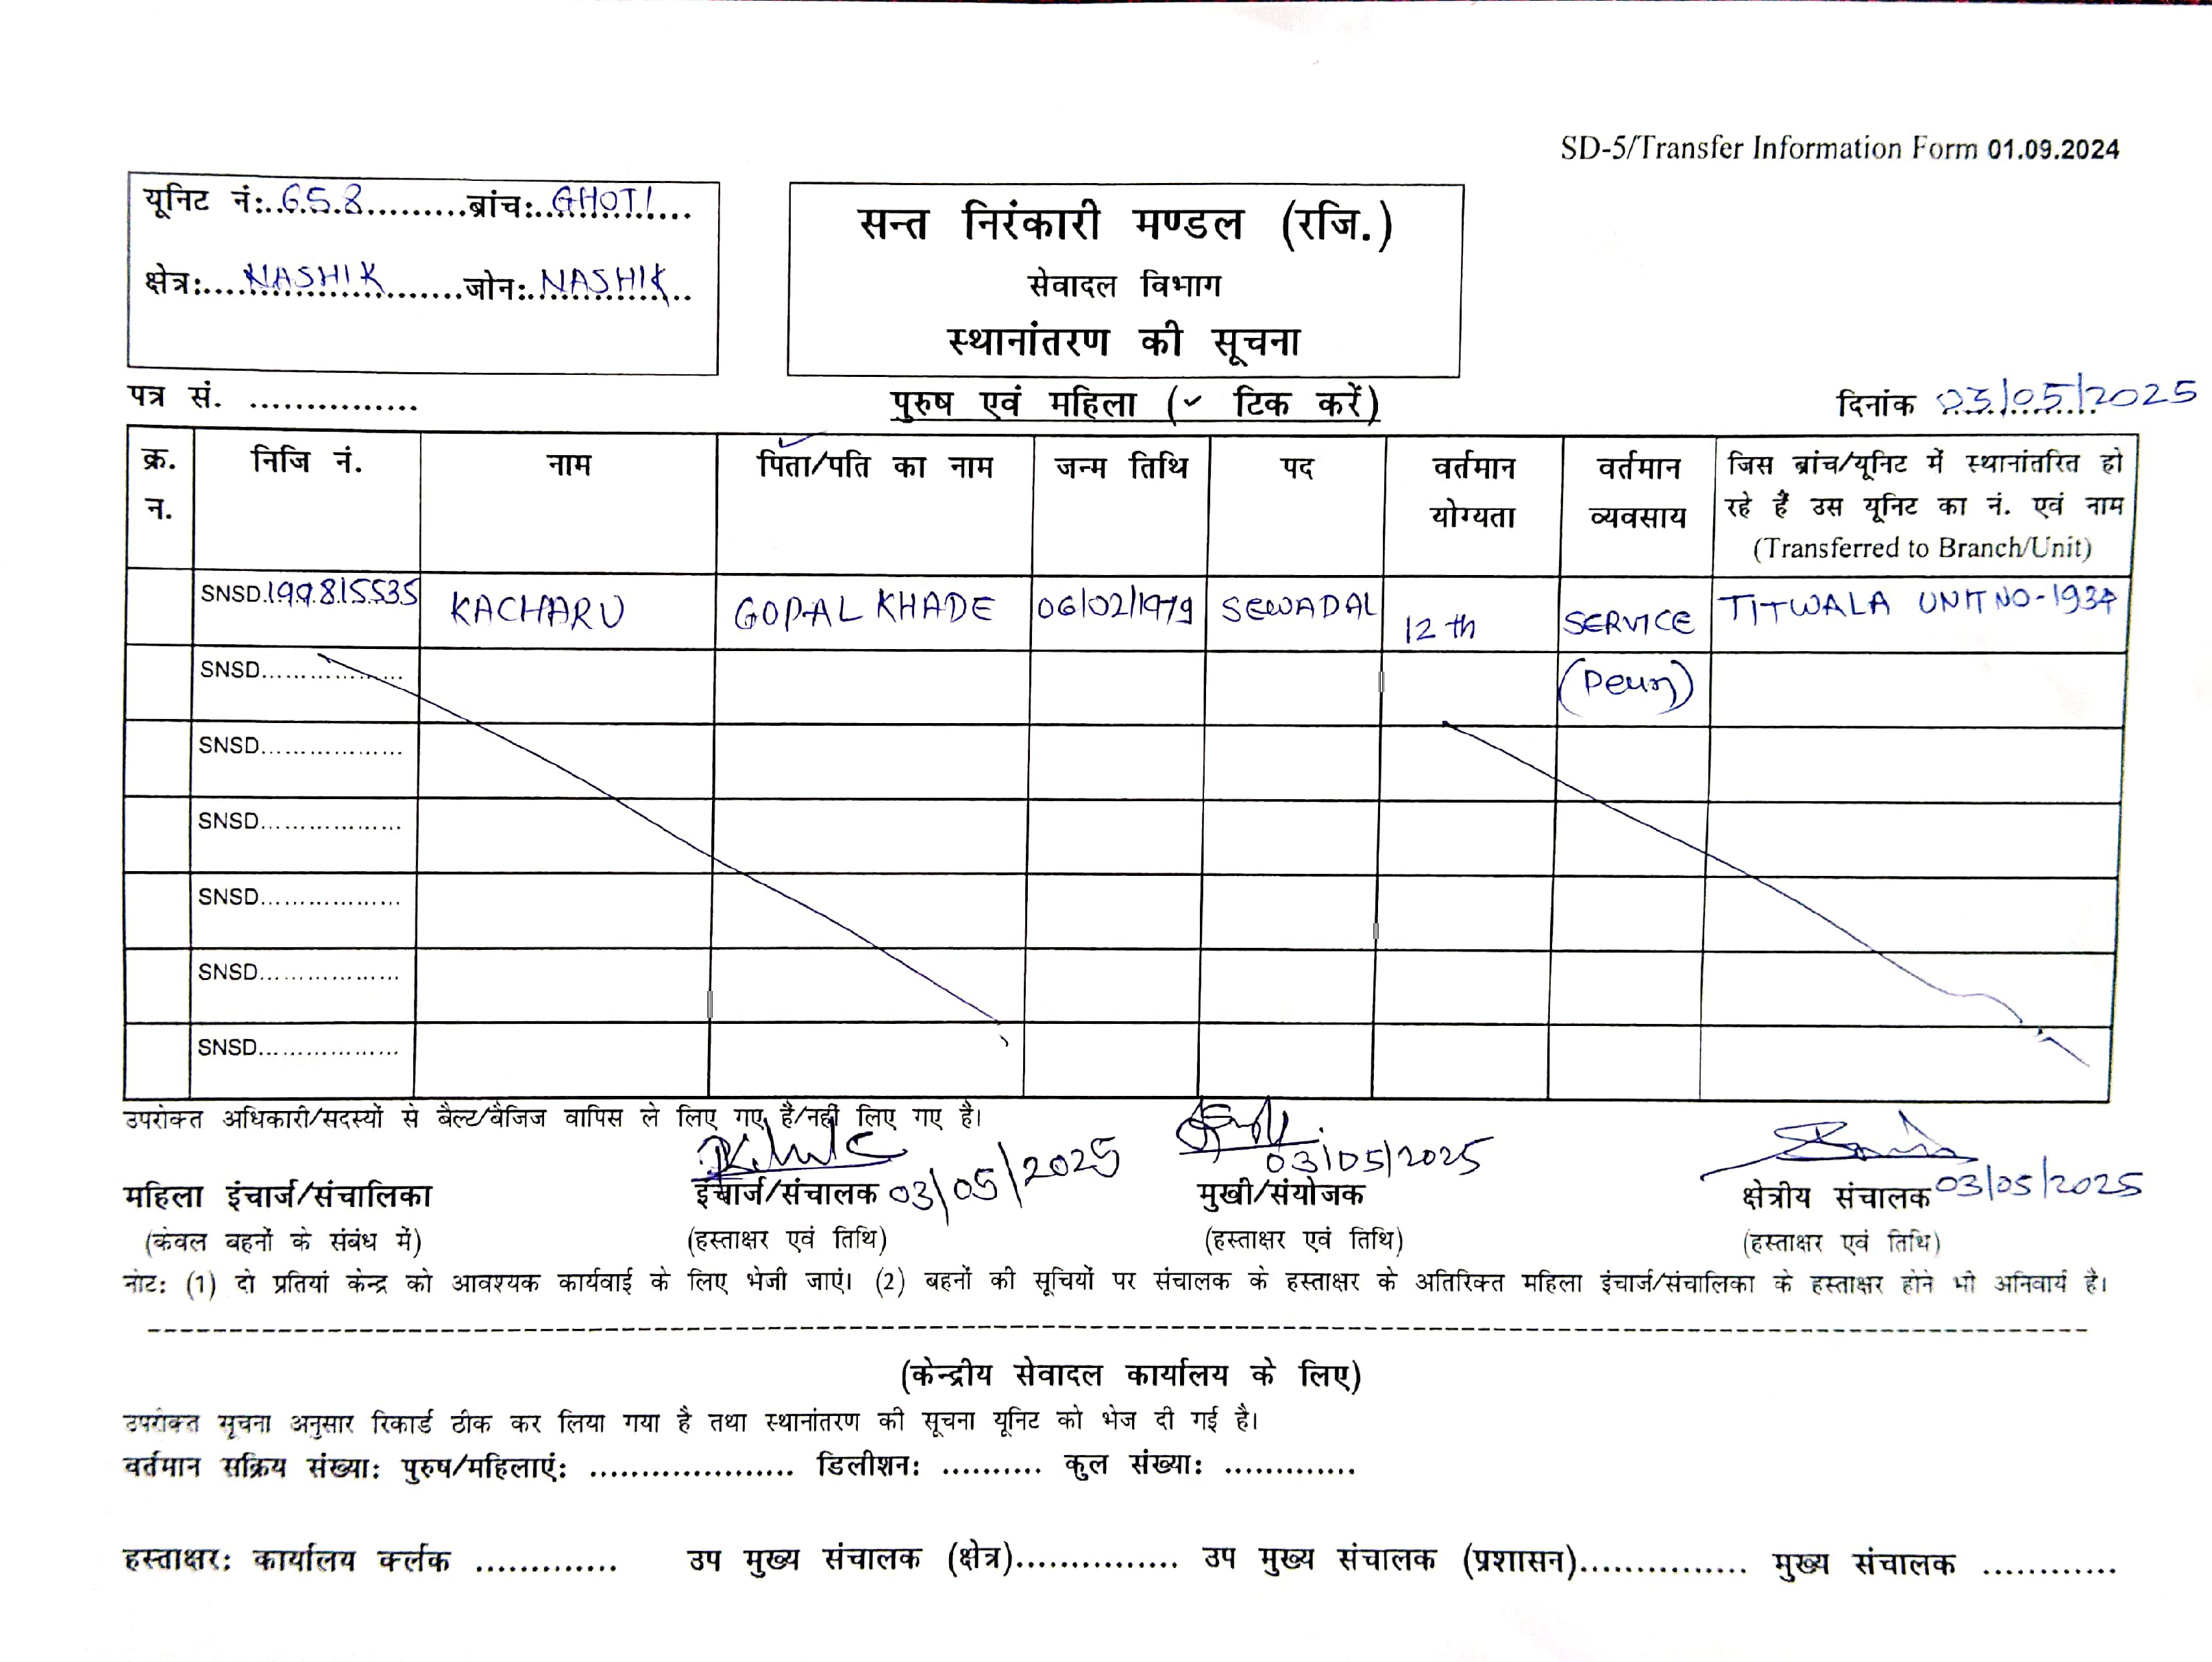 SD-5/Transfer Information Form 01.09.2024
यूनिट नं:..658.........ब्रांच:..GHOTI...
क्षेत्र:....NASHIK.......जोन:.NASHIK..
सन्त निरंकारी मण्डल (रजि.)
सेवादल विभाग
स्थानांतरण की सूचना
पत्र सं. ...............
पुरुष एवं महिला (✓ टिक करें)
दिनांक 03/05/2025
क्र. न. निजि नं. नाम पिता/पति का नाम जन्म तिथि पद वर्तमान योग्यता वर्तमान व्यवसाय जिस ब्रांच/यूनिट में स्थानांतरित हो रहे हैं उस यूनिट का नं. एवं नाम (Transferred to Branch/Unit)
SNSD.199815535 KACHARU GOPAL KHADE 06/02/1979 SEWADAL 12 th SERVICE TITWALA UNIT NO-1934
SNSD.................. (Peun)
SNSD..................
SNSD..................
SNSD..................
SNSD..................
SNSD..................
उपरोक्त अधिकारी/सदस्यों से बैल्ट/बैजिज वापिस ले लिए गए है/नहीं लिए गए है।
महिला इंचार्ज/संचालिका इंचार्ज/संचालक 03/05/2025 मुखी/संयोजक 03/05/2025 क्षेत्रीय संचालक 03/05/2025
(केवल बहनों के संबंध में) (हस्ताक्षर एवं तिथि) (हस्ताक्षर एवं तिथि) (हस्ताक्षर एवं तिथि)
नोट: (1) दो प्रतियां केन्द्र को आवश्यक कार्यवाई के लिए भेजी जाएं। (2) बहनों की सूचियों पर संचालक के हस्ताक्षर के अतिरिक्त महिला इंचार्ज/संचालिका के हस्ताक्षर होने भी अनिवार्य है।
(केन्द्रीय सेवादल कार्यालय के लिए)
उपरोक्त सूचना अनुसार रिकार्ड ठीक कर लिया गया है तथा स्थानांतरण की सूचना यूनिट को भेज दी गई है।
वर्तमान सक्रिय संख्या: पुरुष/महिलाएं: .................... डिलीशन: .......... कुल संख्या: .............
हस्ताक्षर: कार्यालय क्लर्क ............. उप मुख्य संचालक (क्षेत्र)................ उप मुख्य संचालक (प्रशासन)................ मुख्य संचालक .............